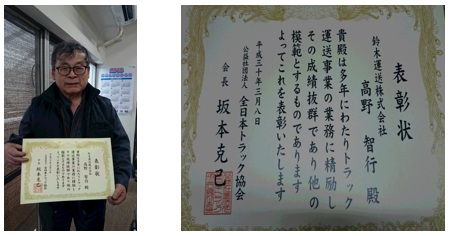 表彰状
鈴木運送株式会社
高野 智行 殿
貴殿は多年にわたりトラック
運送事業の業務に精励し
その成績抜群であり他の
模範とするものであります
よってこれを表彰いたします
平成三十年三月八日
公益社団法人 全日本トラック協会
会長 坂本克己